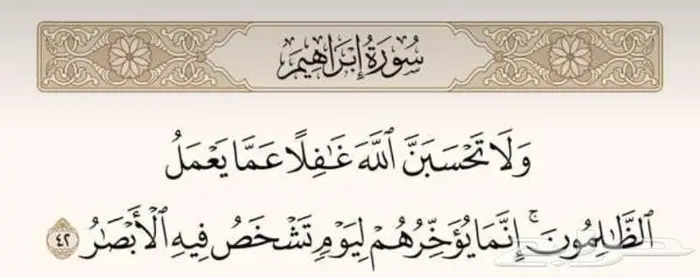 سُورَةُ إِبْرَاهِيمَ
وَلَا تَحْسَبَنَّ ٱللَّهَ غَٰفِلًا عَمَّا يَعْمَلُ
ٱلظَّٰلِمُونَ ۚ إِنَّمَا يُؤَخِّرُهُمْ لِيَوْمٍ تَشْخَصُ فِيهِ ٱلْأَبْصَٰرُ ٤٢